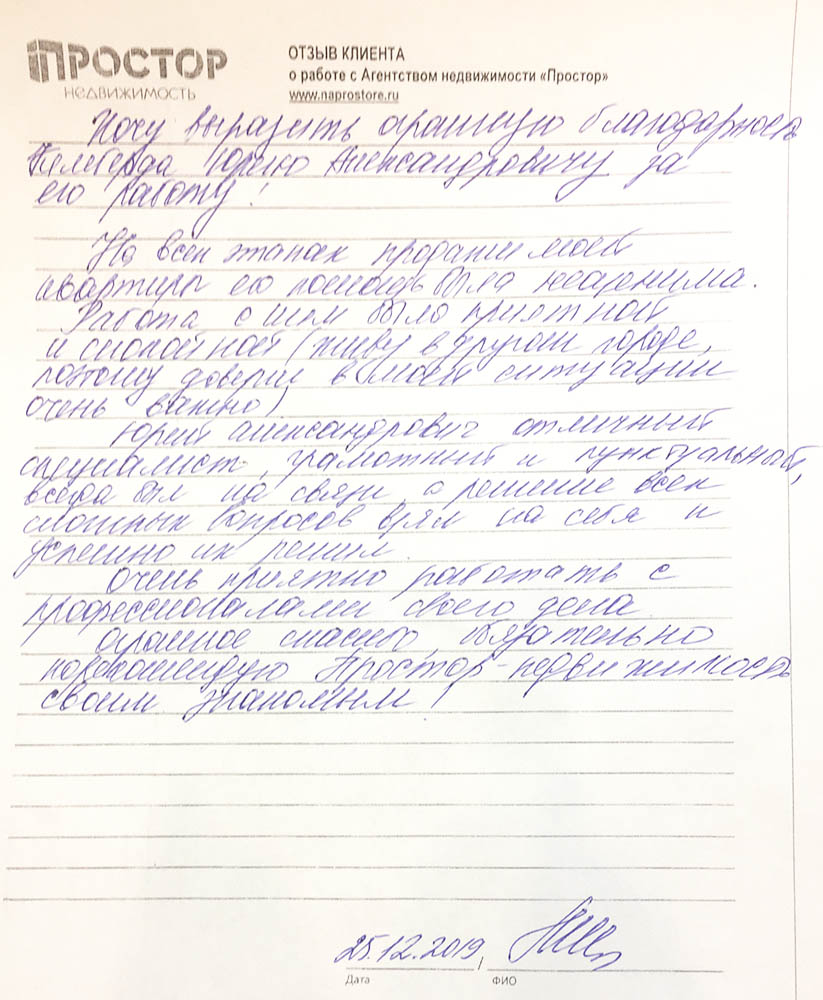 ПРОСТОР
НЕДВИЖИМОСТЬ
ОТЗЫВ КЛИЕНТА
о работе с Агентством недвижимости «Простор»
www.naprostore.ru
Хочу выразить огромную благодарность
Юрию Александровичу за
его работу!
На всех этапах продажи моей
квартиры его помощь была неоценима.
Работа с ним было приятной
и спокойной (живу в другом городе,
поэтому доверие в моей ситуации
очень важно)
Юрий Александрович отличный
специалист, грамотный и пунктуальный,
всегда был на связи, а решение всех
сложных вопросов взял на себя и
успешно их решил.
Очень приятно работать с
профессионалами своего дела.
Огромное спасибо, обязательно
порекомендую Простор-недвижимость
своим знакомым!
25.12.2019,
Дата
ФИО